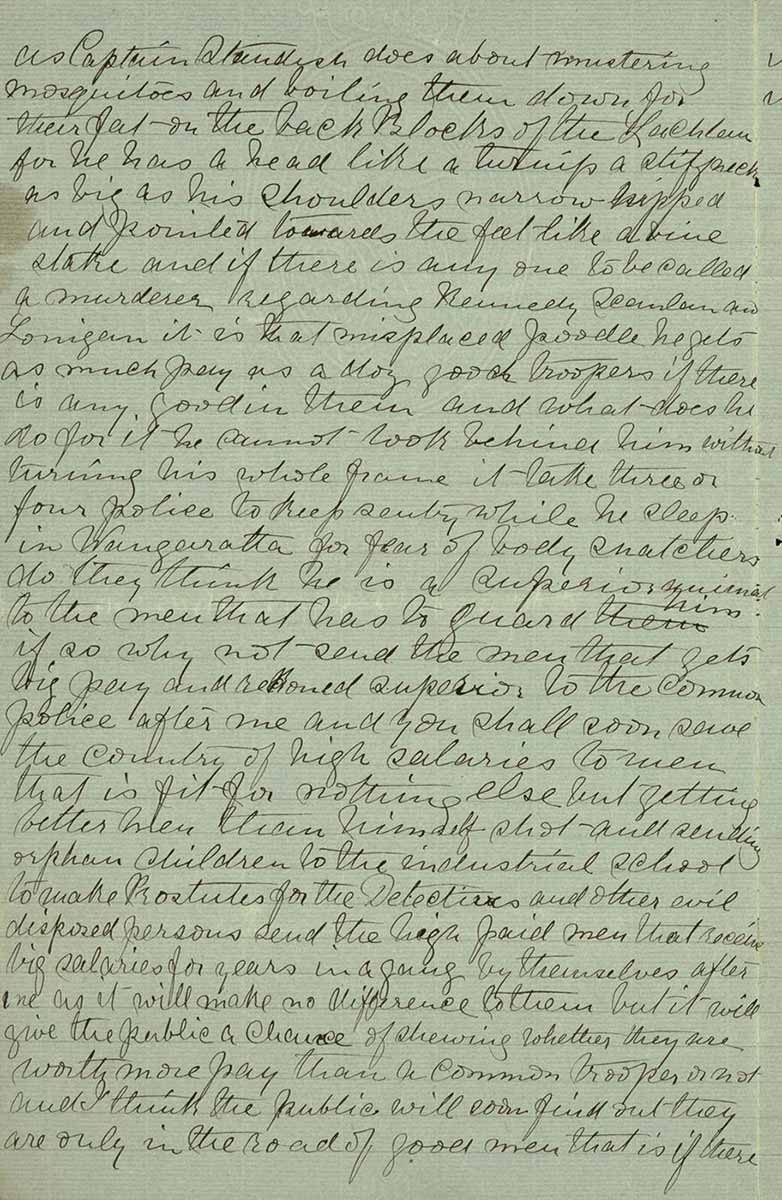 as Captain Standish does about mustering
mosquitoes and boiling them down for
their fat on the back Blocks of the Lachlan
for he has a head like a turnip a stiff neck
as big as his shoulders narrow hipped
and pointed towards the feet like a vine
stake and if there is any one to be called
a murderer regarding Kennedy Scanlan and
Lonigan it is that misplaced poodle he gets
as much pay as a doz good troopers if there
is any good in them and what does he
do for it he cannot look behind him without
turning his whole frame it take three or
four police to keep sentry while he sleep
in Wangaratta for fear of body snatchers
do they think he is a superior animal
to the men that has to guard them him
if so why not send the men that gets
big pay and reckoned superior to the common
police after me and you shall soon save
the country of high salaries to men
that is fit for nothing else but getting
better men than himself shot and sending
orphan children to the industrial school
to make Prostutes for the Detectives and other evil
disposed persons send the high paid men that receive
big salaries for years in a gang by themselves after
me as it will make no difference to them but it will
give the public a chance of shewing whether they are
worth more pay than a common trooper or not
and I think the public will soon find out they
are only in the road of good men that is if there